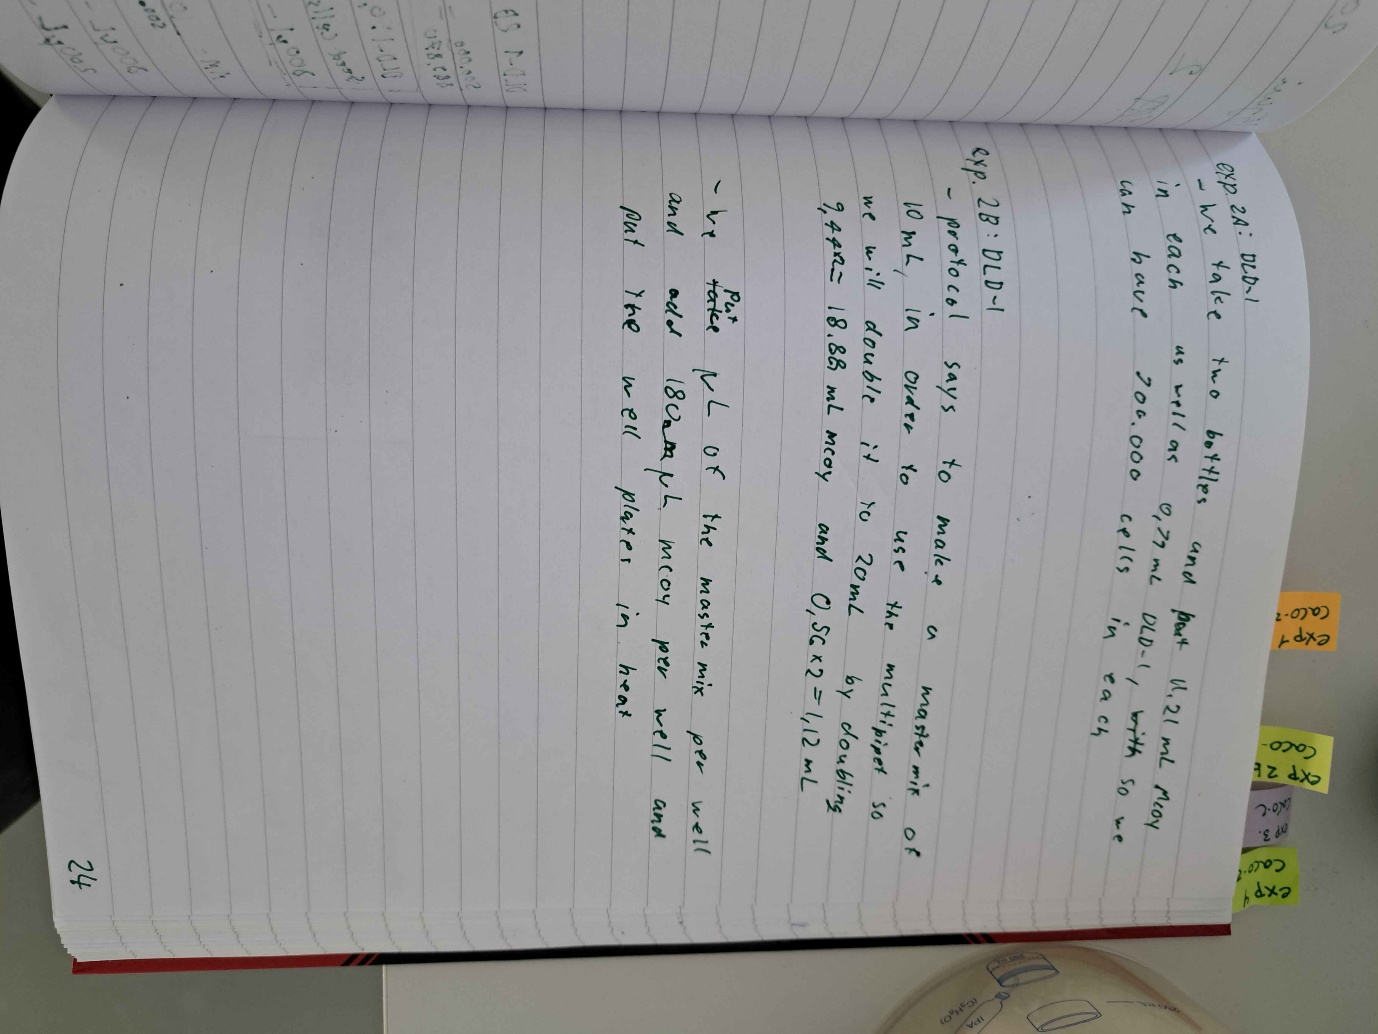 exp. 2A: DLD-1
- we take two bottles and put 11,21 mL mcoy
in each as well as 0,77 mL DLD-1, with so we
can have 200.000 cells in each
exp. 2B: DLD-1
- protocol says to make a master mix of
10 mL, in order to use the multipipet so
we will double it to 20mL by doubling
9,44x2= 18.88 mL mcoy and 0,56x2=1,12 mL
put
- we take µL of the master mix per well
and add 180 µL mcoy per well and
put the well plates in heat
24
exp 1
CaCO-2
exp 2
CaCO-
exp 3.
CaCO-2
exp 4
CaCO-2
IPA
(C3H8O)